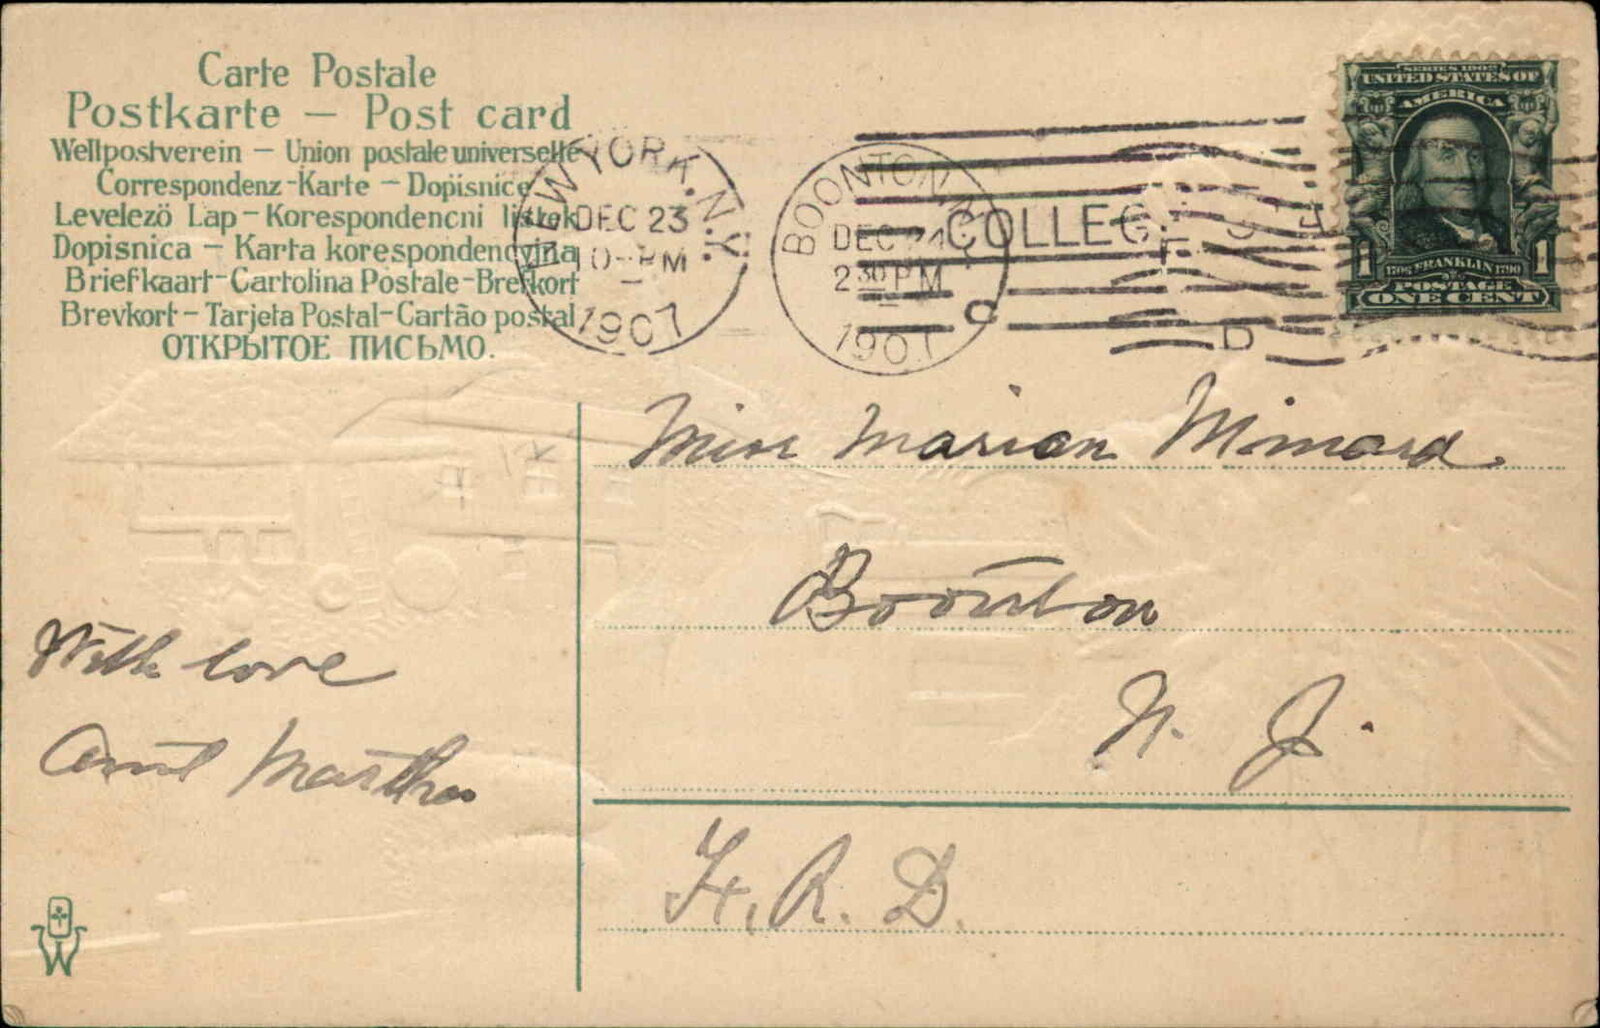 Carte Postale
Postkarte – Post card
Weltpostverein – Union postale universelle
Correspondenz-Karte – Dopisnice
Levelező Lap – Korespondencni listek
Dopisnica – Karta korespondencyjna
Briefkaart-Cartolina Postale-Brefkort
Brevkort – Tarjeta Postal-Cartão postal
ОТКРЫТОЕ ПИСЬМО.
NEW YORK, N.Y.
DEC 23
10-PM
1907
BOONTON, N.J.
DEC 24
2 30 PM
1907
COLLEGE
C
D
SERIES 1902
UNITED STATES OF
AMERICA
1706 FRANKLIN 1790
1 1
POSTAGE
ONE CENT
Miss Marian Minard.
Boonton
N. J.
F. R. D.
With love
Aunt Martha
W